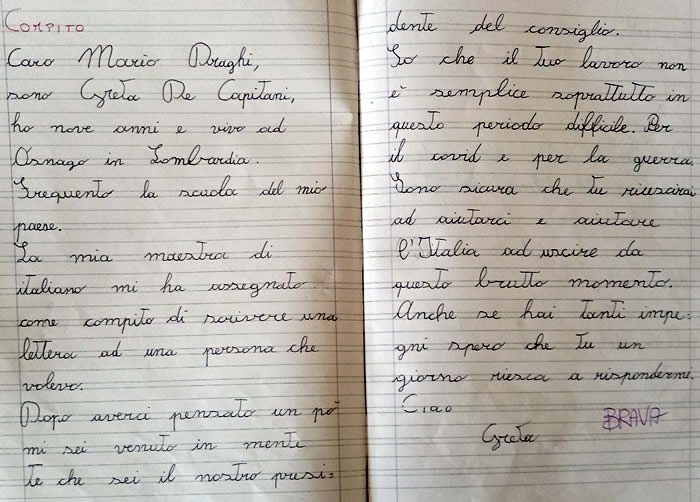 COMPITO
Caro Mario Draghi,
sono Greta De Capitani,
ho nove anni e vivo ad
Osnago in Lombardia.
Frequento la scuola del mio
paese.
La mia maestra di
italiano mi ha assegnato
come compito di scrivere una
lettera ad una persona che
volevo.
Dopo averci pensato un pò
mi sei venuto in mente
te che sei il nostro presi=
dente del consiglio.
So che il tuo lavoro non
è semplice soprattutto in
questo periodo difficile. Per
il covid e per la guerra.
Sono sicura che tu riuscirai
ad aiutarci e aiutare
l'Italia ad uscire da
questo brutto momento.
Anche se hai tanti impe=
gni spero che tu un
giorno riesca a rispondermi.
Ciao
BRAVA
Greta